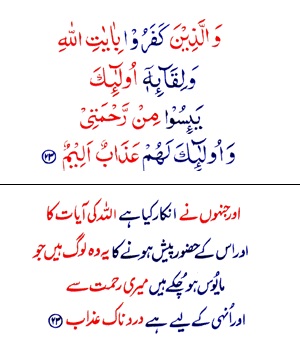 وَالَّذِيْنَ كَفَرُوْا بِاٰيٰتِ اللّٰهِ
وَلِقَآئِهٖٓ اُولٰٓئِكَ
يَئِسُوْا مِنْ رَّحْمَتِيْ
وَاُولٰٓئِكَ لَهُمْ عَذَابٌ اَلِيْمٌ ﴿۲۳﴾
اور جنہوں نے انکار کیا ہے اللہ کی آیات کا
اور اس کے حضور پیش ہونے کا یہ وہ لوگ ہیں جو
مایُوس ہو چُکے ہیں میری رحمت سے
اور اُنہی کے لیے ہے درد ناک عذاب ﴿۲۳﴾